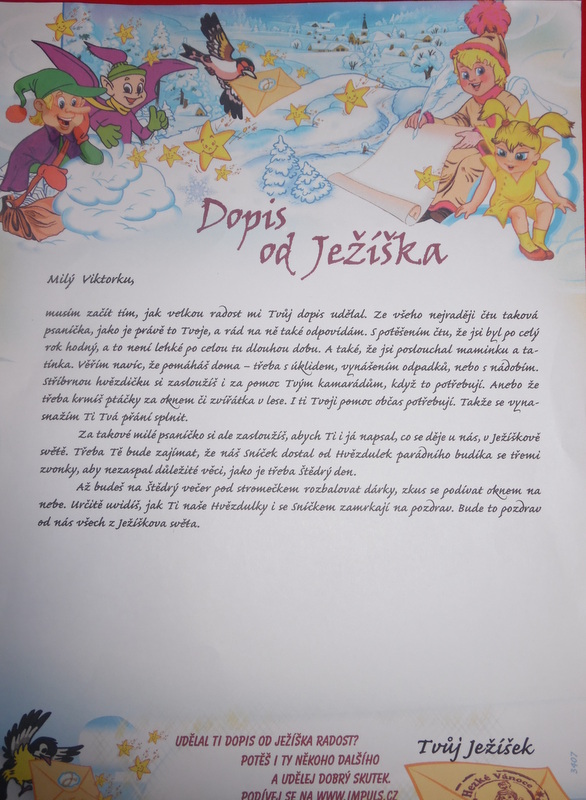 Dopis
od Ježíška
Milý Viktorku,
musím začít tím, jak velkou radost mi Tvůj dopis udělal. Ze všeho nejraději čtu taková
psaníčka, jako je právě to Tvoje, a rád na ně také odpovídám. S potěšením čtu, že jsi byl po celý
rok hodný, a to není lehké po celou tu dlouhou dobu. A také, že jsi poslouchal maminku a ta-
tínka. Věřím navíc, že pomáháš doma – třeba s úklidem, vynášením odpadků, nebo s nádobím.
Stříbrnou hvězdičku si zasloužíš i za pomoc Tvým kamarádům, když to potřebují. Anebo že
třeba krmíš ptáčky za oknem či zvířátka v lese. I ti Tvoji pomoc občas potřebují. Takže se vyna-
snažím Ti Tvá přání splnit.
Za takové milé psaníčko si ale zasloužíš, abych Ti i já napsal, co se děje u nás, v Ježíškově
světě. Třeba Tě bude zajímat, že náš Sníček dostal od Hvězdulek parádního budíka se třemi
zvonky, aby nezaspal důležité věci, jako je třeba Štědrý den.
Až budeš na Štědrý večer pod stromečkem rozbalovat dárky, zkus se podívat oknem na
nebe. Určitě uvidíš, jak Ti naše Hvězdulky i se Sníčkem zamrkají na pozdrav. Bude to pozdrav
od nás všech z Ježíškova světa.
Tvůj Ježíšek
UDĚLAL TI DOPIS OD JEŽÍŠKA RADOST?
POTĚŠ I TY NĚKOHO DALŠÍHO
A UDĚLEJ DOBRÝ SKUTEK.
PODÍVEJ SE NA WWW.IMPULS.CZ
Hezké Vánoce
3407